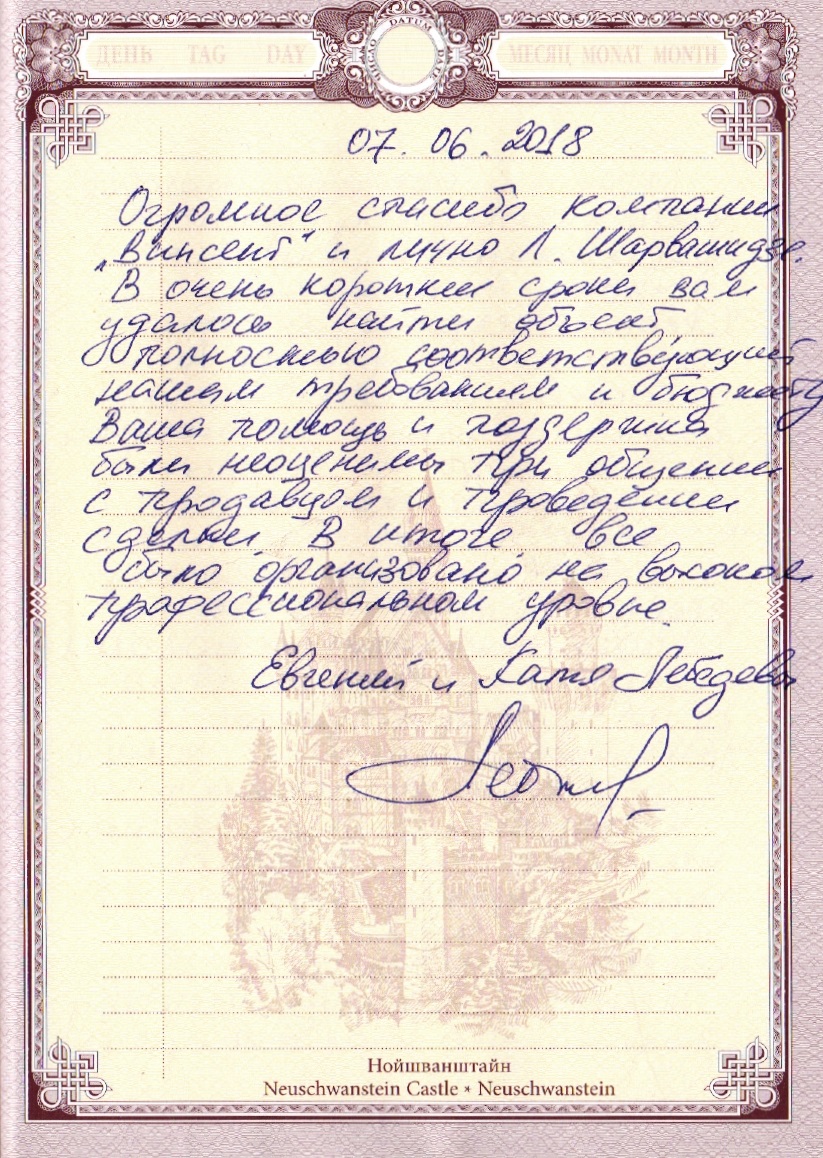 ДЕНЬ TAG DAY
ЧИСЛО DATUM DATE
МЕСЯЦ MONAT MONTH
07. 06. 2018
Огромное спасибо компании
„Винсент" и лично Л. Шарвашидзе.
В очень короткии сроки вам
удалось найти объект
полностью соответствующий
нашим требованиям и бюджету
Ваша помощь и поддержка
были неоценимы при общении
с продавцом и проведении
сделки. В итоге все
было организовано на высоком
профессиональном уровне.
Евгений и Катя Лебедевы
Нойшванштайн
Neuschwanstein Castle * Neuschwanstein